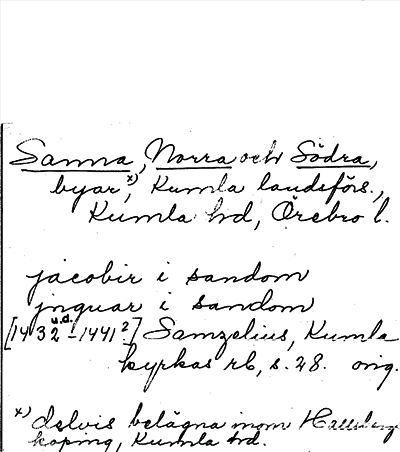 Sanna, Norra och Södra,
byar x), Kumla landsförs.,
Kumla hd, Örebro l.
jacobir i sandom
jnguar i sandom
[1432 u.d. - 1441?] Samzelius, Kumla
kyrkas rb, s. 28. orig.
x) delvis belägna inom Hallsbergs
köping, Kumla hd.